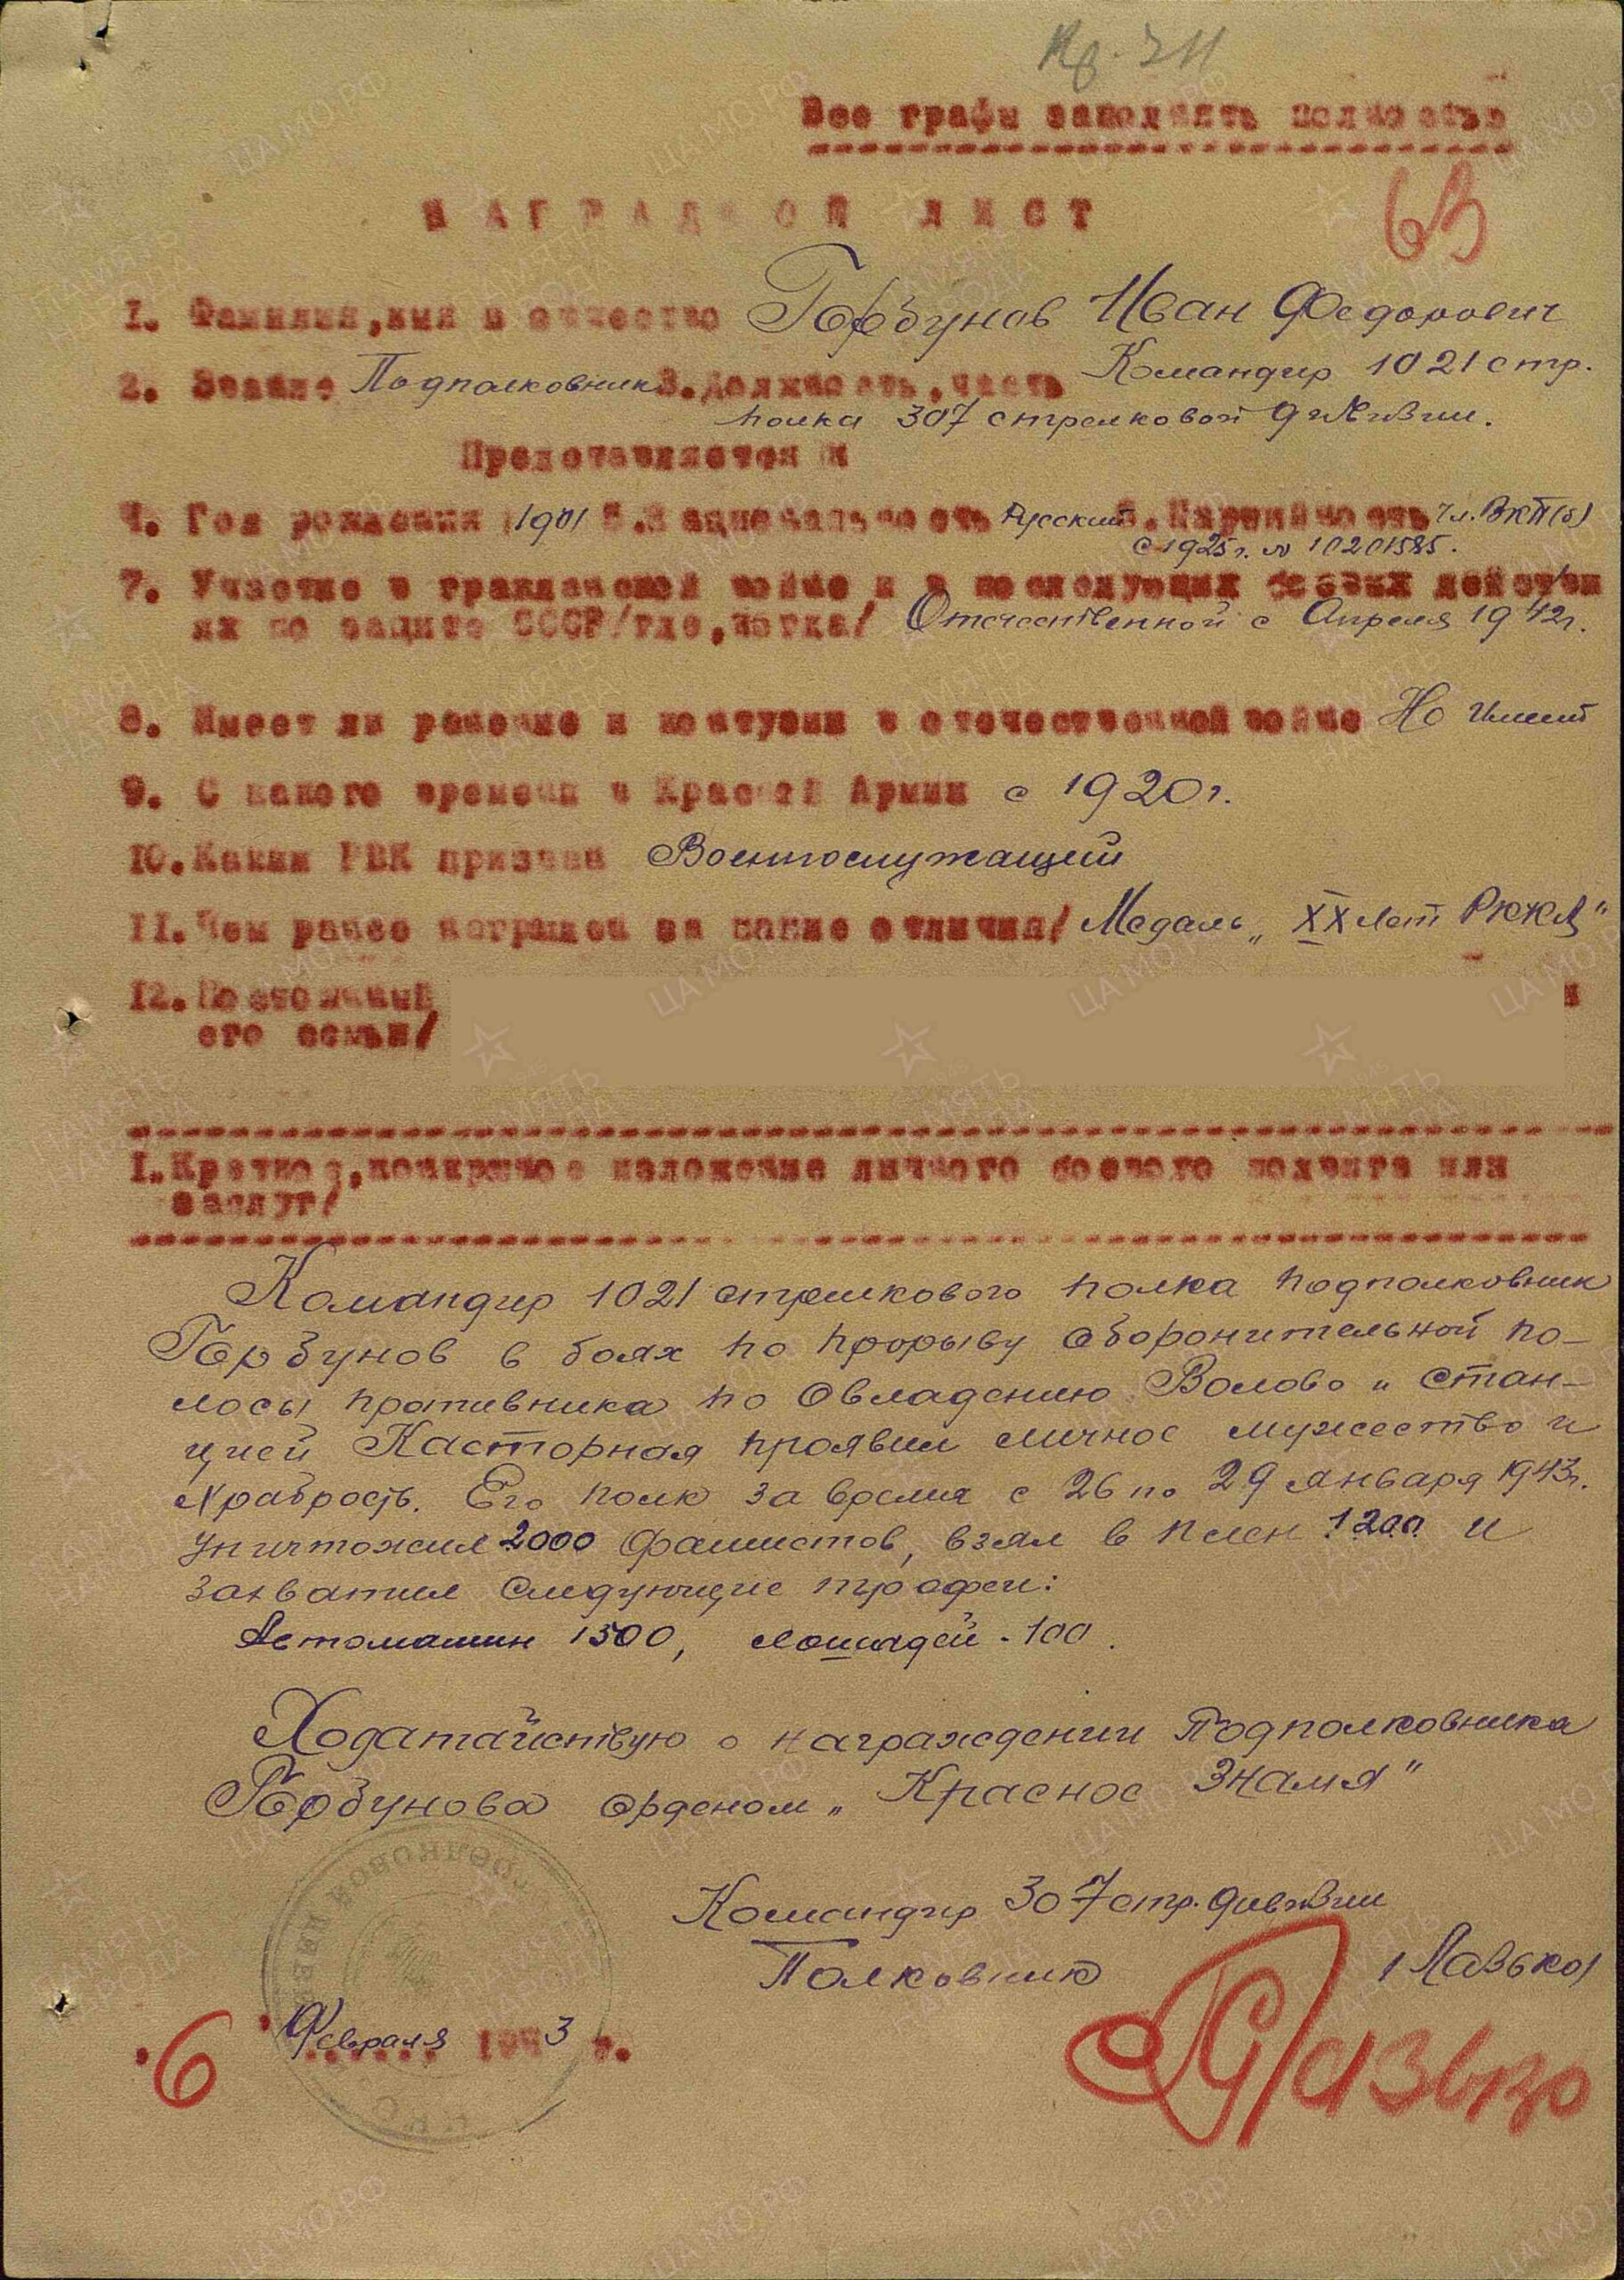 Все графы заполнять полностью
63
НАГРАДНОЙ ЛИСТ
1. Фамилия, имя и отчество Горбунов Иван Федорович
2. Звание Подполковник 3. Должность, часть Командир 1021 стр.
полка 307 стрелковой дивизии.
Представляется к
4. Год рождения 1901 5. Национальность Русский 6. Партийность чл. ВКП(б)
с 1925 г. № 10201585.
7. Участие в гражданской войне и в последующих боевых действи
ях по защите СССР/где, когда/ Отечественной с Апреля 1942 г.
8. Имеет ли ранение и контузии в отечественной войне Не имеет
9. С какого времени в Красной Армии с 1920 г.
10. Каким РВК призван Военнослужащий
11. Чем ранее награжден за какие отличия/ Медаль „XX лет РККА"
12. Постоянный
его семьи/
I. Краткое, конкретное изложение личного боевого подвига или
заслуг/
Командир 1021 стрелкового полка подполковник
Горбунов в боях по прорыву оборонительной по-
лосы противника по овладению Волово и стан-
цией Касторная проявил личное мужество и
храбрость. Его полк за время с 26 по 29 января 1943 г.
уничтожил 2000 фашистов, взял в плен 1200 и
захватил следующие трофеи:
Автомашин 1500, лошадей - 100.
Ходатайствую о награждении Подполковника
Горбунова орденом „Красное Знамя"
Командир 307 стр. дивизии
Полковник /Лазько/
6 Февраля 1943 г.